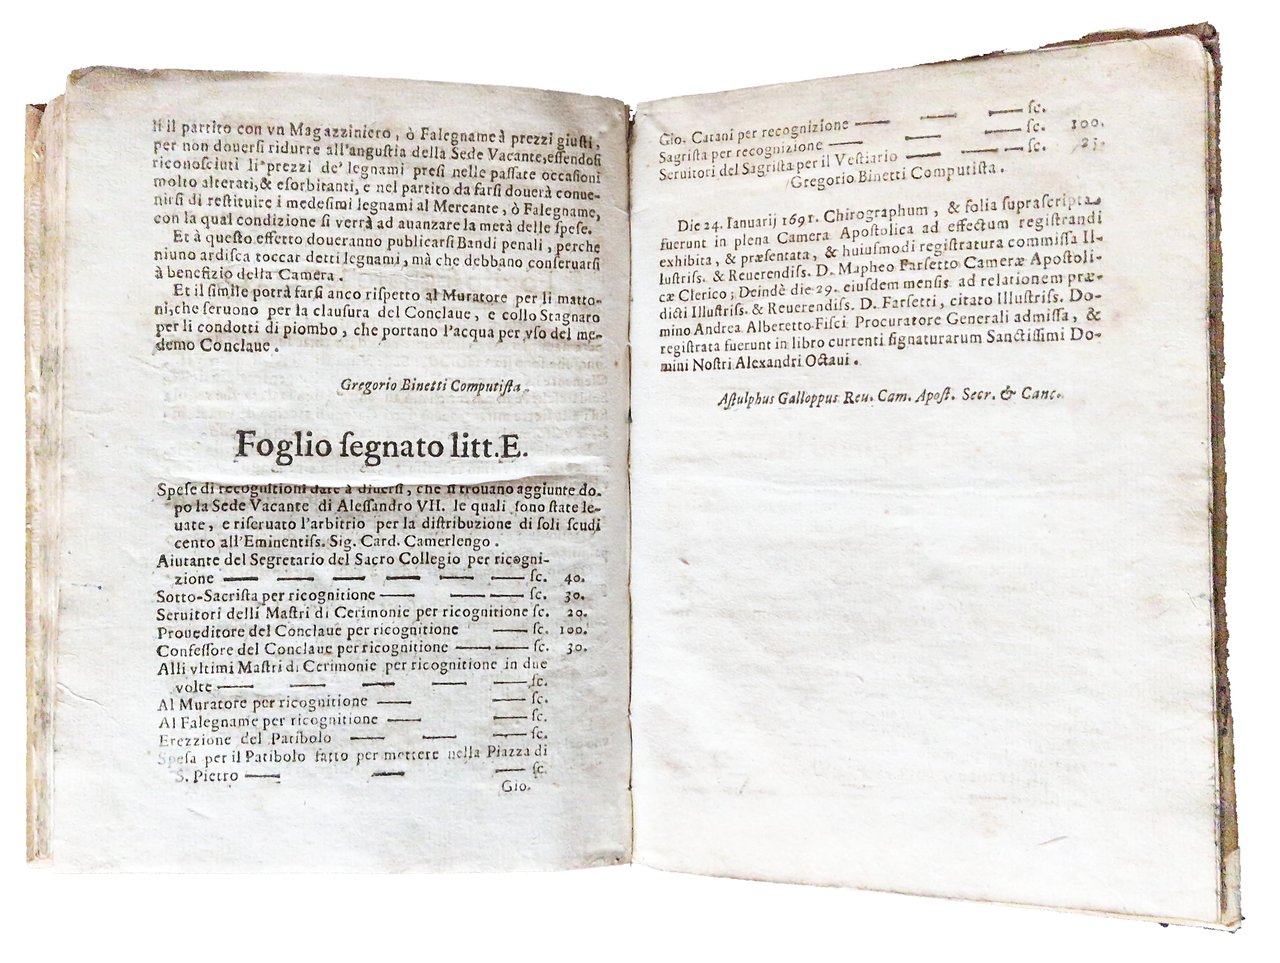 si il partito con vn Magazziniero, ò Falegname à prezzi giusti,
per non douersi ridurre all'angustia della Sede Vacante, essendosi
riconosciuti li prezzi de' legnami presi nelle passate occasioni
molto alterati, & esorbitanti, e nel partito da farsi douerà conue-
nirsi di restituire i medesimi legnami al Mercante, ò Falegname,
con la qual condizione si verrà ad auanzare la metà delle spese.
Et à questo effetto doueranno publicarsi Bandi penali, perche
niuno ardisca toccar detti legnami, mà che debbano conseruarsi
à benefizio della Camera.
Et il simile potrà farsi anco rispetto al Muratore per li matto-
ni, che seruono per la clausura del Conclaue, e collo Stagnaro
per li condotti di piombo, che portano l'acqua per vso del me-
demo Conclaue.
Gregorio Binetti Computista.
Foglio segnato litt. E.
Spese di recognitioni date à diuersi, che si trouano aggiunte do-
po la Sede Vacante di Alessandro VII. le quali sono state le-
uate, e riseruato l'arbitrio per la distribuzione di soli scudi
cento all'Eminentiss. Sig. Card. Camerlengo.
Aiutante del Segretario del Sacro Collegio per ricogni-
zione — — — — — — sc. 40.
Sotto-Sacrista per ricognitione — — — sc. 30.
Seruitori delli Mastri di Cerimonie per ricognitione sc. 20.
Proueditore del Conclaue per ricognitione — sc. 100.
Confessore del Conclaue per ricognitione — — sc. 30.
Alli vltimi Mastri di Cerimonie per ricognitione in due
volte — — — — — sc.
Al Muratore per ricognitione — — sc.
Al Falegname per ricognitione — — sc.
Erezzione del Patibolo — — — sc.
Spesa per il Patibolo fatto per mettere nella Piazza di
S. Pietro — — — sc.
Gio.
Gio. Catani per recognizione — — — sc.
Sagrista per recognizione — — — sc. 100.
Seruitori del Sagrista per il Vestiario — — — sc. 25.
Gregorio Binetti Computista.
Die 24. Ianuarij 1691. Chirographum, & folia suprascripta
fuerunt in plena Camera Apostolica ad effectum registrandi
exhibita, & præsentata, & huiusmodi registratura commissa Il-
lustriss. & Reuerendiss. D. Mapheo Farsetto Cameræ Apostoli-
cæ Clerico; Deindè die 29. eiusdem mensis ad relationem præ-
dicti Illustriss. & Reuerendiss. D. Farsetti, citato Illustriss. Do-
mino Andrea Alberetto Fisci Procuratore Generali admissa, &
registrata fuerunt in libro currenti signaturarum Sanctissimi Do-
mini Nostri Alexandri Octaui.
Astulphus Galloppus Reu. Cam. Apost. Secr. & Canc.